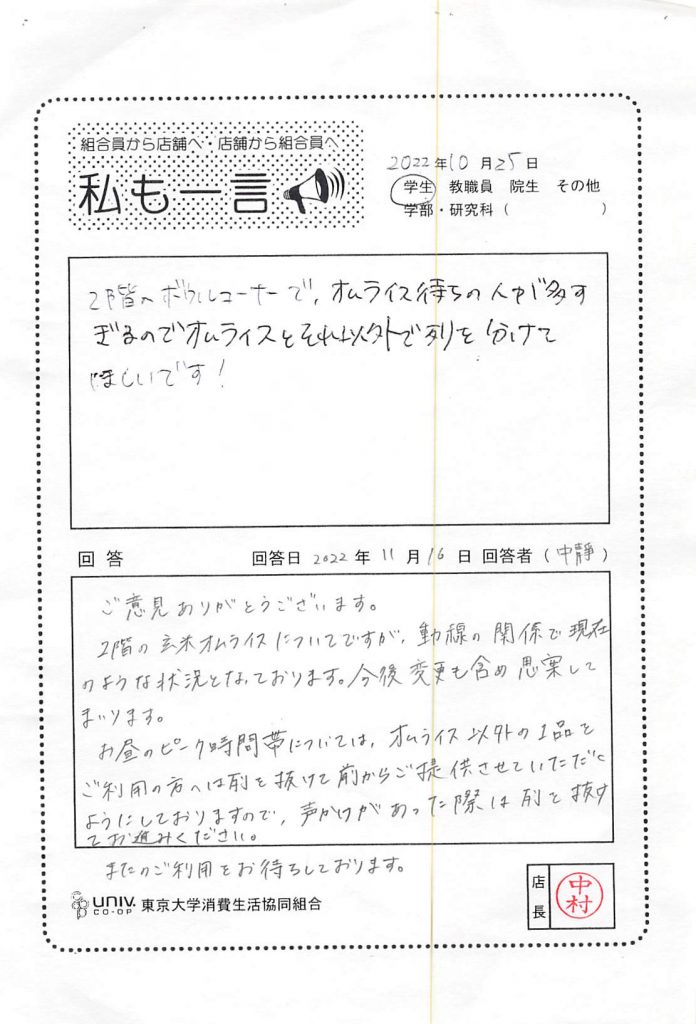 組合員から店舗へ・店舗から組合員へ
私も一言
2022年10月25日
学生 教職員 院生 その他
学部・研究科（ ）
2階へボウルコーナーで、オムライス待ちの人が多す
ぎるのでオムライスとそれ以外で列を分けて
ほしいです！
回答 回答日 2022年11月16日 回答者（中静）
ご意見ありがとうございます。
2階の玄米オムライスについてですが、動線の関係で現在
のような状況となっております。今後変更も含め思案して
まいります。
お昼のピーク時間帯については、オムライス以外の1品を
ご利用の方へは列を抜けて前からご提供させていただく
ようにしておりますので、声かけがあった際は列を抜け
てお進みください。
またのご利用をお待ちしております。
UNIV. CO-OP 東京大学消費生活協同組合
店長 中村